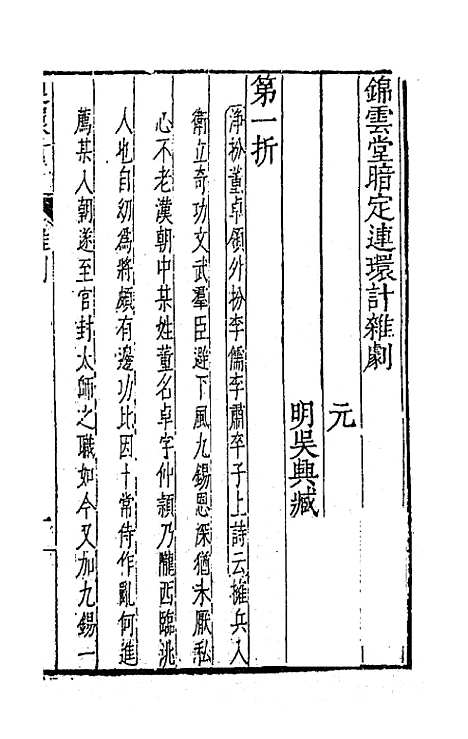 錦雲堂暗定連環計雜劇
元
明吳興臧
第一折
淨扮董卓領外扮李儒李肅卒子上詩云擁兵入
衛立奇功文武羣臣避下風九錫恩深猶未厭私
心不老漢朝中某姓董名卓字仲頴乃隴西臨洮
人也自幼爲將頗有邊功比因十常侍作亂何進
薦某入朝遂至官封太師之職如今又加九錫一